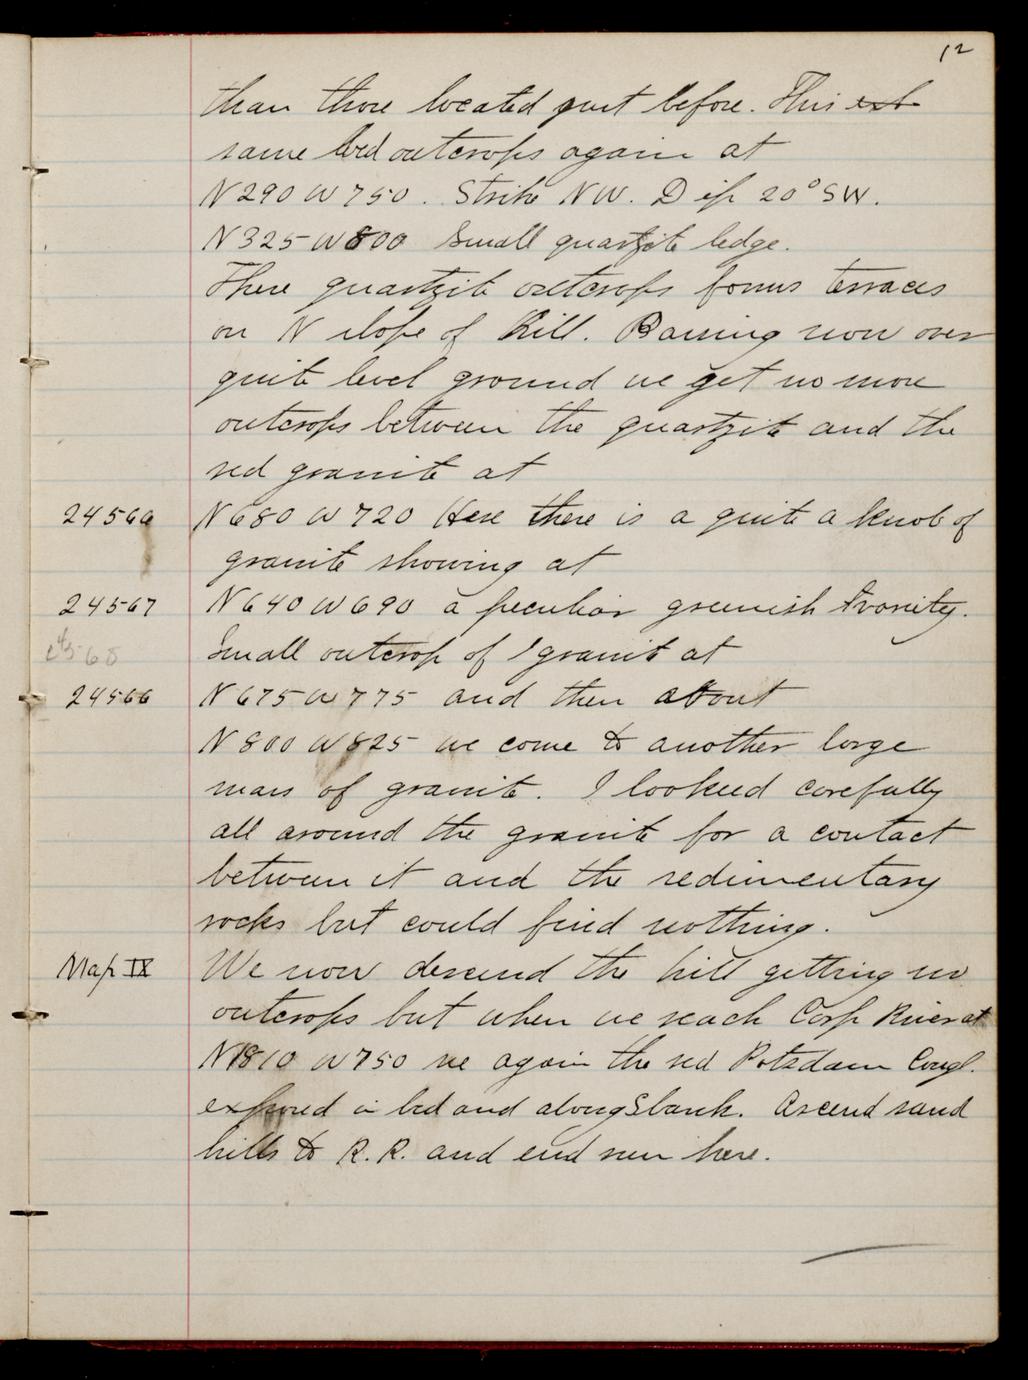 12
than those located just before. This
same bed outcrops again at
N290 W750. Strike NW. Dip 20° SW.
N325 W800 Small quartzite ledge.
These quartzite outcrops forms terraces
on N slope of hill. Passing now over
quite level ground we get no more
outcrops between the quartzite and the
red granite at
24566 N680 W720 Here there is a quite a knob of
granite showing at
24567 N640 W690 a peculiar greenish
Small outcrop of granite at
24566 N675 W775 and then about
N800 W825 we come to another large
mass of granite. I looked carefully
all around the granite for a contact
between it and the sedimentary
rocks but could find nothing.
Map IX We now descend the hill getting no
outcrops but when we reach Carp River at
N1810 W750 we again the red Potsdam Congl.
exposed in bed and along S bank. Ascend sand
hills to R.R. and end run here.